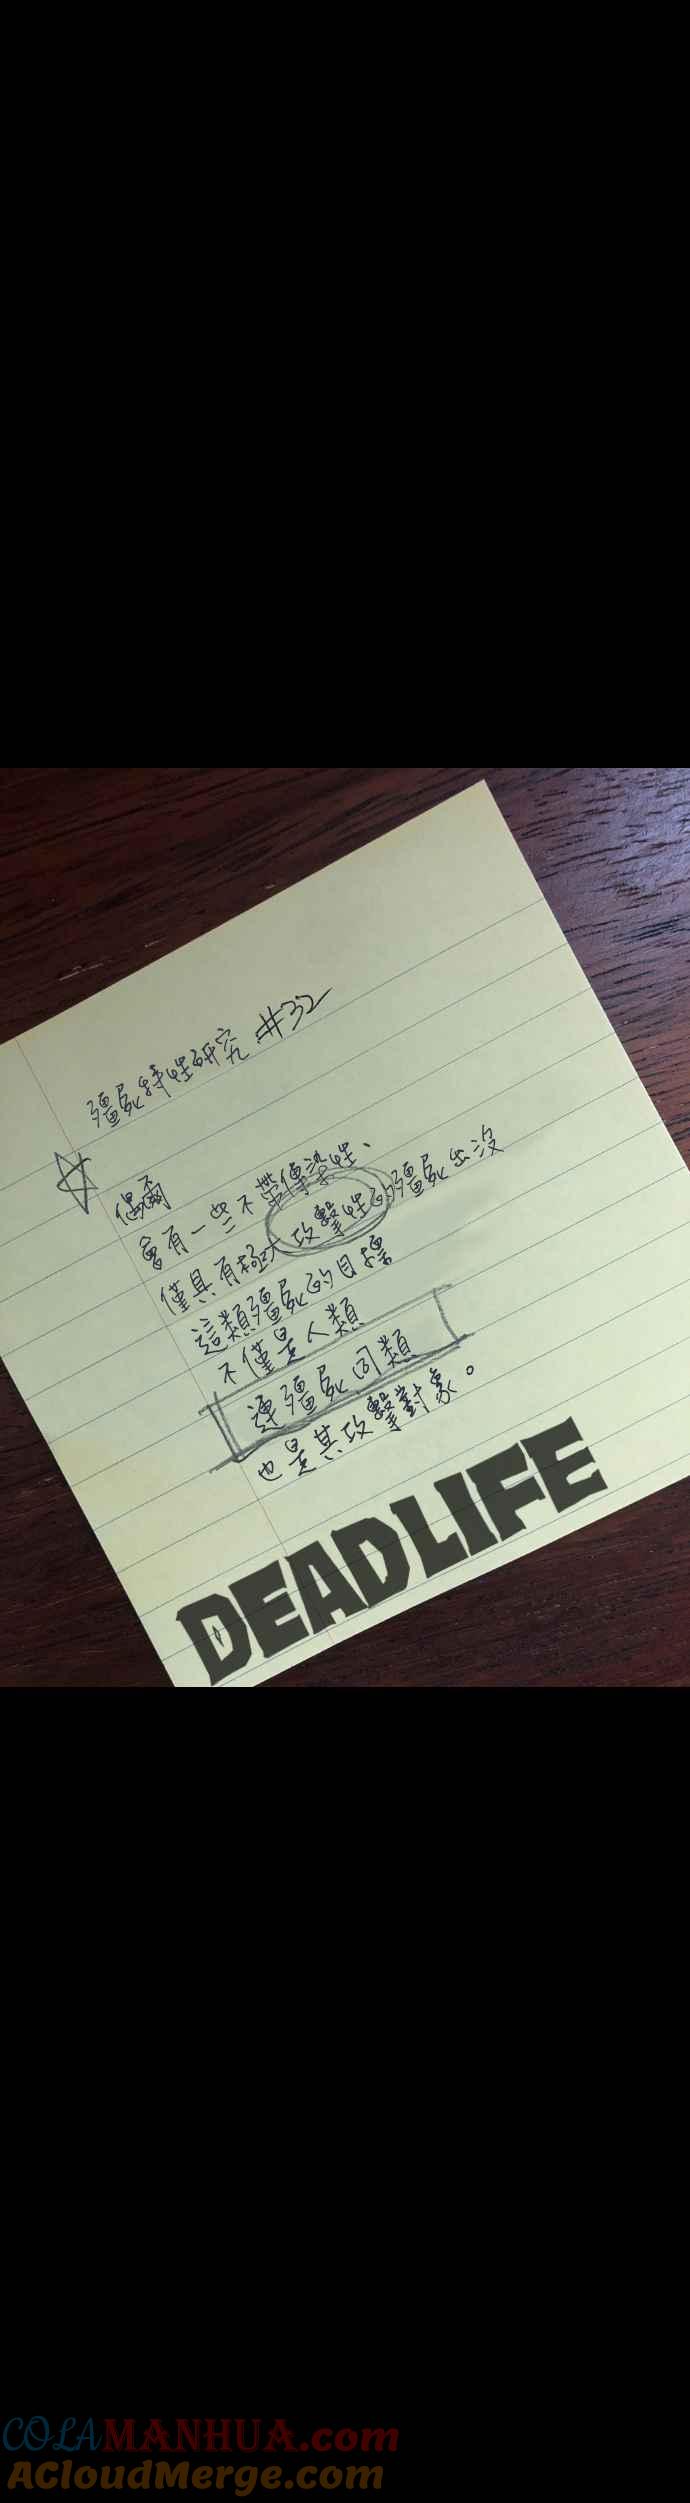 殭屍特性研究 #32
偶爾
會有一些不帶傳染性、
僅具有極大攻擊性的殭屍出沒
這類殭屍的目標
不僅是人類
連殭屍同類
也是其攻擊對象。
DEADLIFE
COLAMANHUA.com
ACloudMerge.com